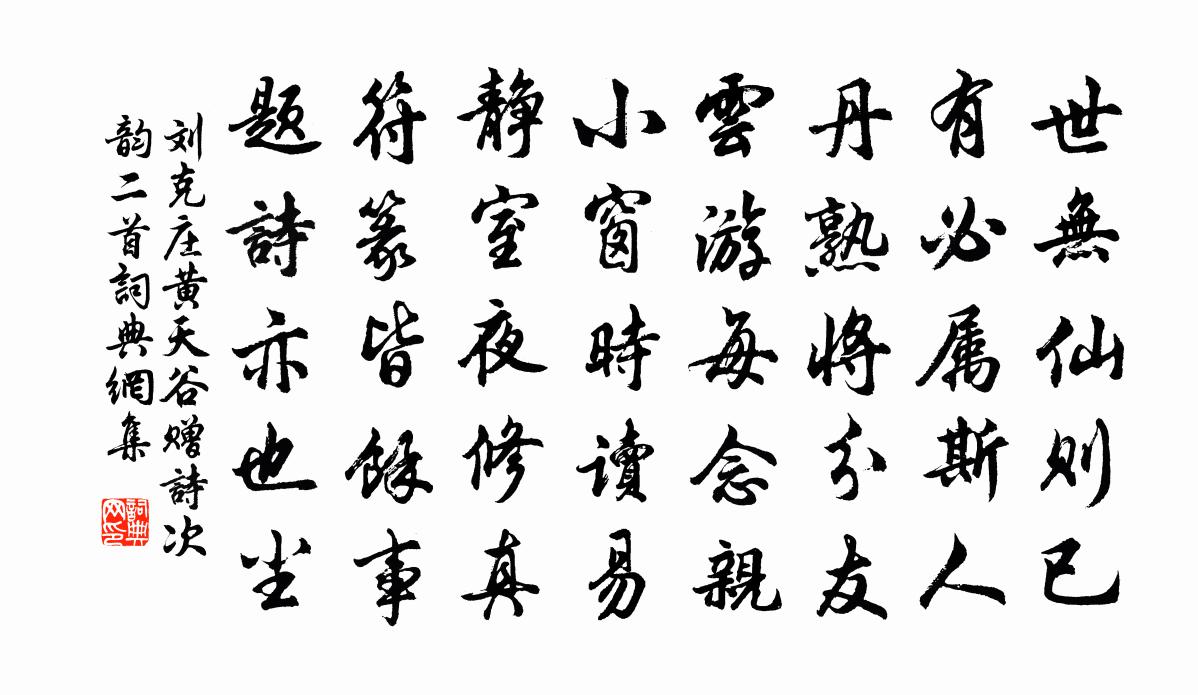 世無仙則已
有必属斯人
丹熟將分友
雲游每念親
小窗時讀易
静室夜修真
符篆皆餘事
题詩亦也尘
刘克庄黄天谷赠詩次
韵二首詞典網集
詞典網印